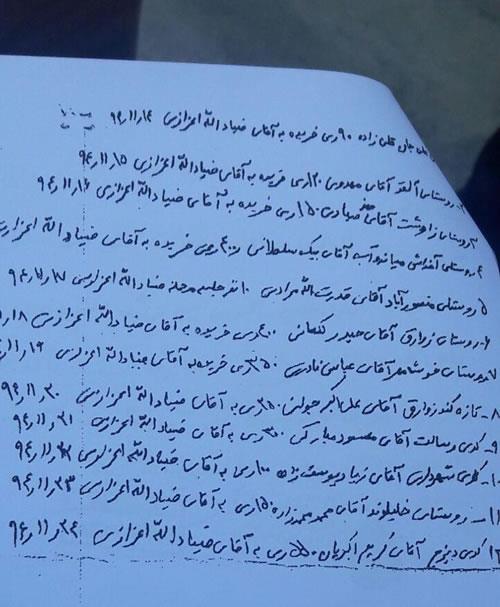 علی جان قلی زاده ۹۰ رای خریده به آقای ضیاد الله اعزازی ۹۴٫۱۱٫۱۴
۲_ روستای آلقو آقای مهدوی ۱۲۰ رای خریده به آقای ضیاد الله اعزازی ۹۴٫۱۱٫۱۵
۳ روستای زاوشت آقای صیادی ۱۵۰ رای خریده به آقای ضیاد الله اعزازی ۹۴٫۱۱٫۱۶
۴ روستای آقای بیک سلطانی ۴۰۰ رای خریده به آقای ضیاد الله اعزازی
۵ روستای منصورآباد آقای قدرت الله مرادی ۱۰ نفر جلسه محله ضیاد الله اعزازی ۹۴٫۱۱٫۱۷
۶_ روستای زوارق آقای حیدر ۴۰۰ رای خریده به آقای ضیاد الله اعزازی ۱۸٫۱۱
۷ روستای خوشامهر آقای عباس نادری ۳۵۰ رای خریده به آقای ضیاد الله اعزازی ۱۹٫۱۱
۸_ تازه کند زوارق آقای علی اکبر ۳۵۰ رای به آقای ضیاد الله اعزازی ۹۴٫۱۱٫۲۰
۹_ کوی رسالت آقای مسعود مبارکی ۳۰۰ رای به آقای ضیاد الله اعزازی ۹۴٫۱۱٫۲۱
۱۰_ کوی شهرداری آقای یوسف زاده ۱۰۰ رای به آقای ضیاد الله اعزازی ۹۴٫۱۱٫۲۲
۱۱_ روستای خلیلوند آقای محمد محمدزاده ۱۵۰ رای به آقای ضیاد الله اعزازی ۹۴٫۱۱٫۲۳
۱۲ کوی دیزج آقای کریم اکبریان ۵۵۰ رای به آقای ضیاد الله اعزازی ۹۴٫۱۱٫۲۴